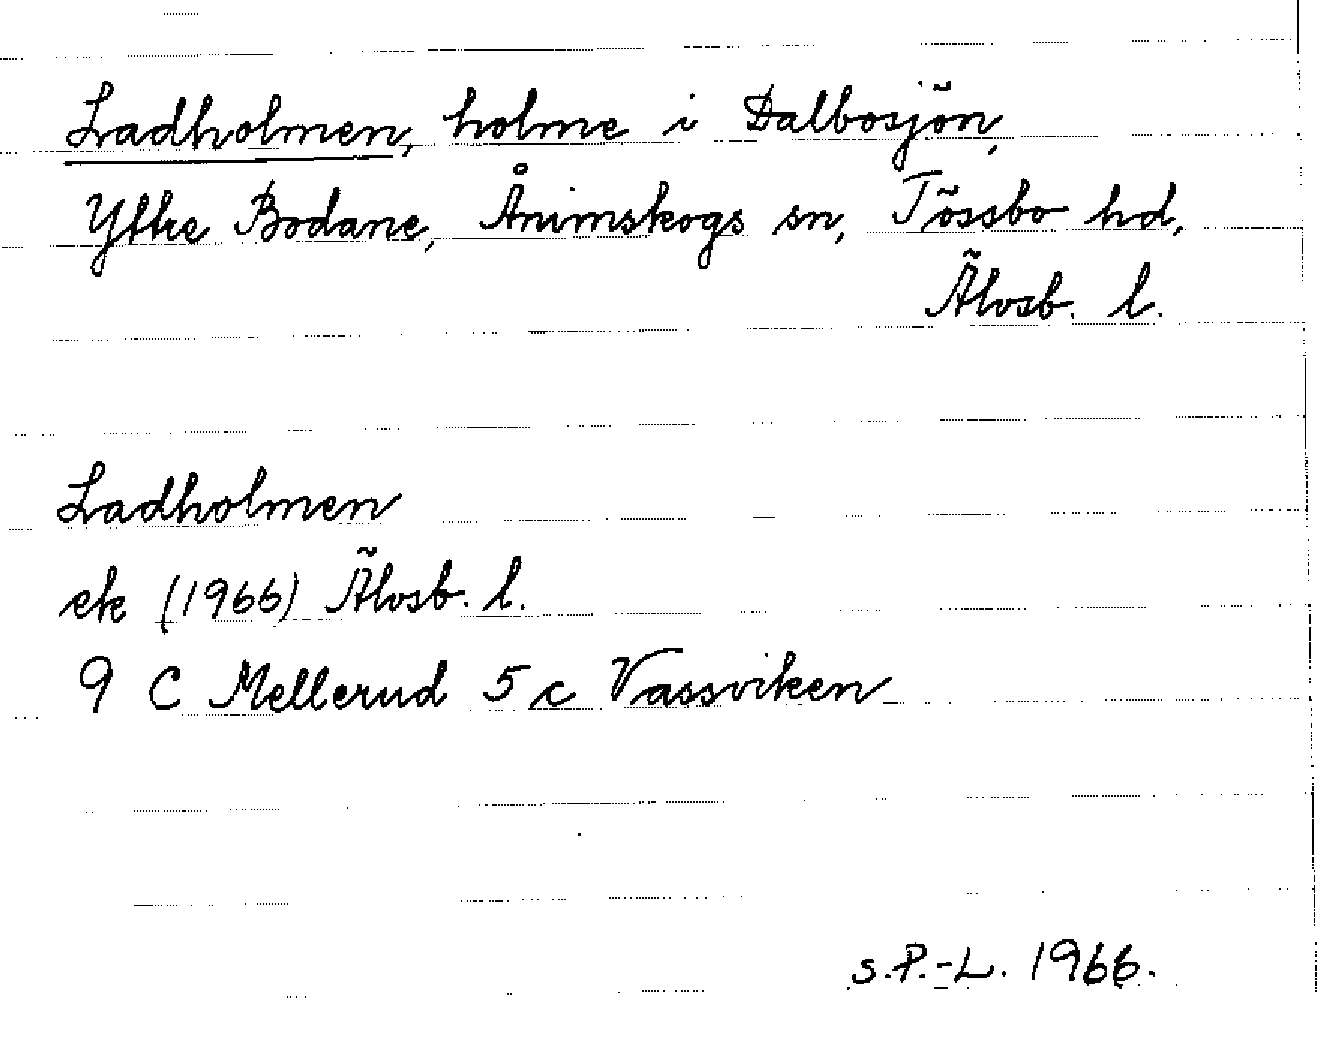 Ladholmen, holme i Dalbosjön,
Yttre Bodane, Ånimskogs sn, Tössbo hd,
Älvsb. l.
Ladholmen
ek (1966) Älvsb. l.
9 C Mellerud 5 c Vassviken
S.P.-L. 1966.